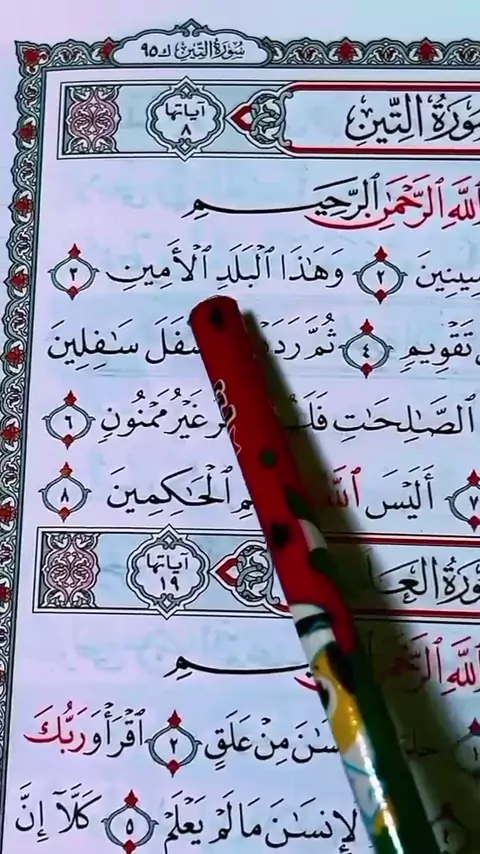 سُورَةُ التِّينِ ك ٩٥
آيَاتُهَا ٨
سُورَةُ التِّينِ
ٱللَّهِ ٱلرَّحْمَٰنِ ٱلرَّحِيمِ
سِينِينَ ٢ وَهَٰذَا ٱلْبَلَدِ ٱلْأَمِينِ ٣
تَقْوِيمٍ ٤ ثُمَّ سَٰفِلِينَ
ٱلصَّٰلِحَٰتِ غَيْرُ مَمْنُونٍ ٦
٧ أَلَيْسَ ٱللَّهُ ٱلْحَٰكِمِينَ ٨
آيَاتُهَا ١٩
سُورَةُ
ٱللَّهِ
١ مِنْ عَلَقٍ ٢ ٱقْرَأْ وَرَبُّكَ
٤ مَا لَمْ يَعْلَمْ ٥ كَلَّآ إِنَّ